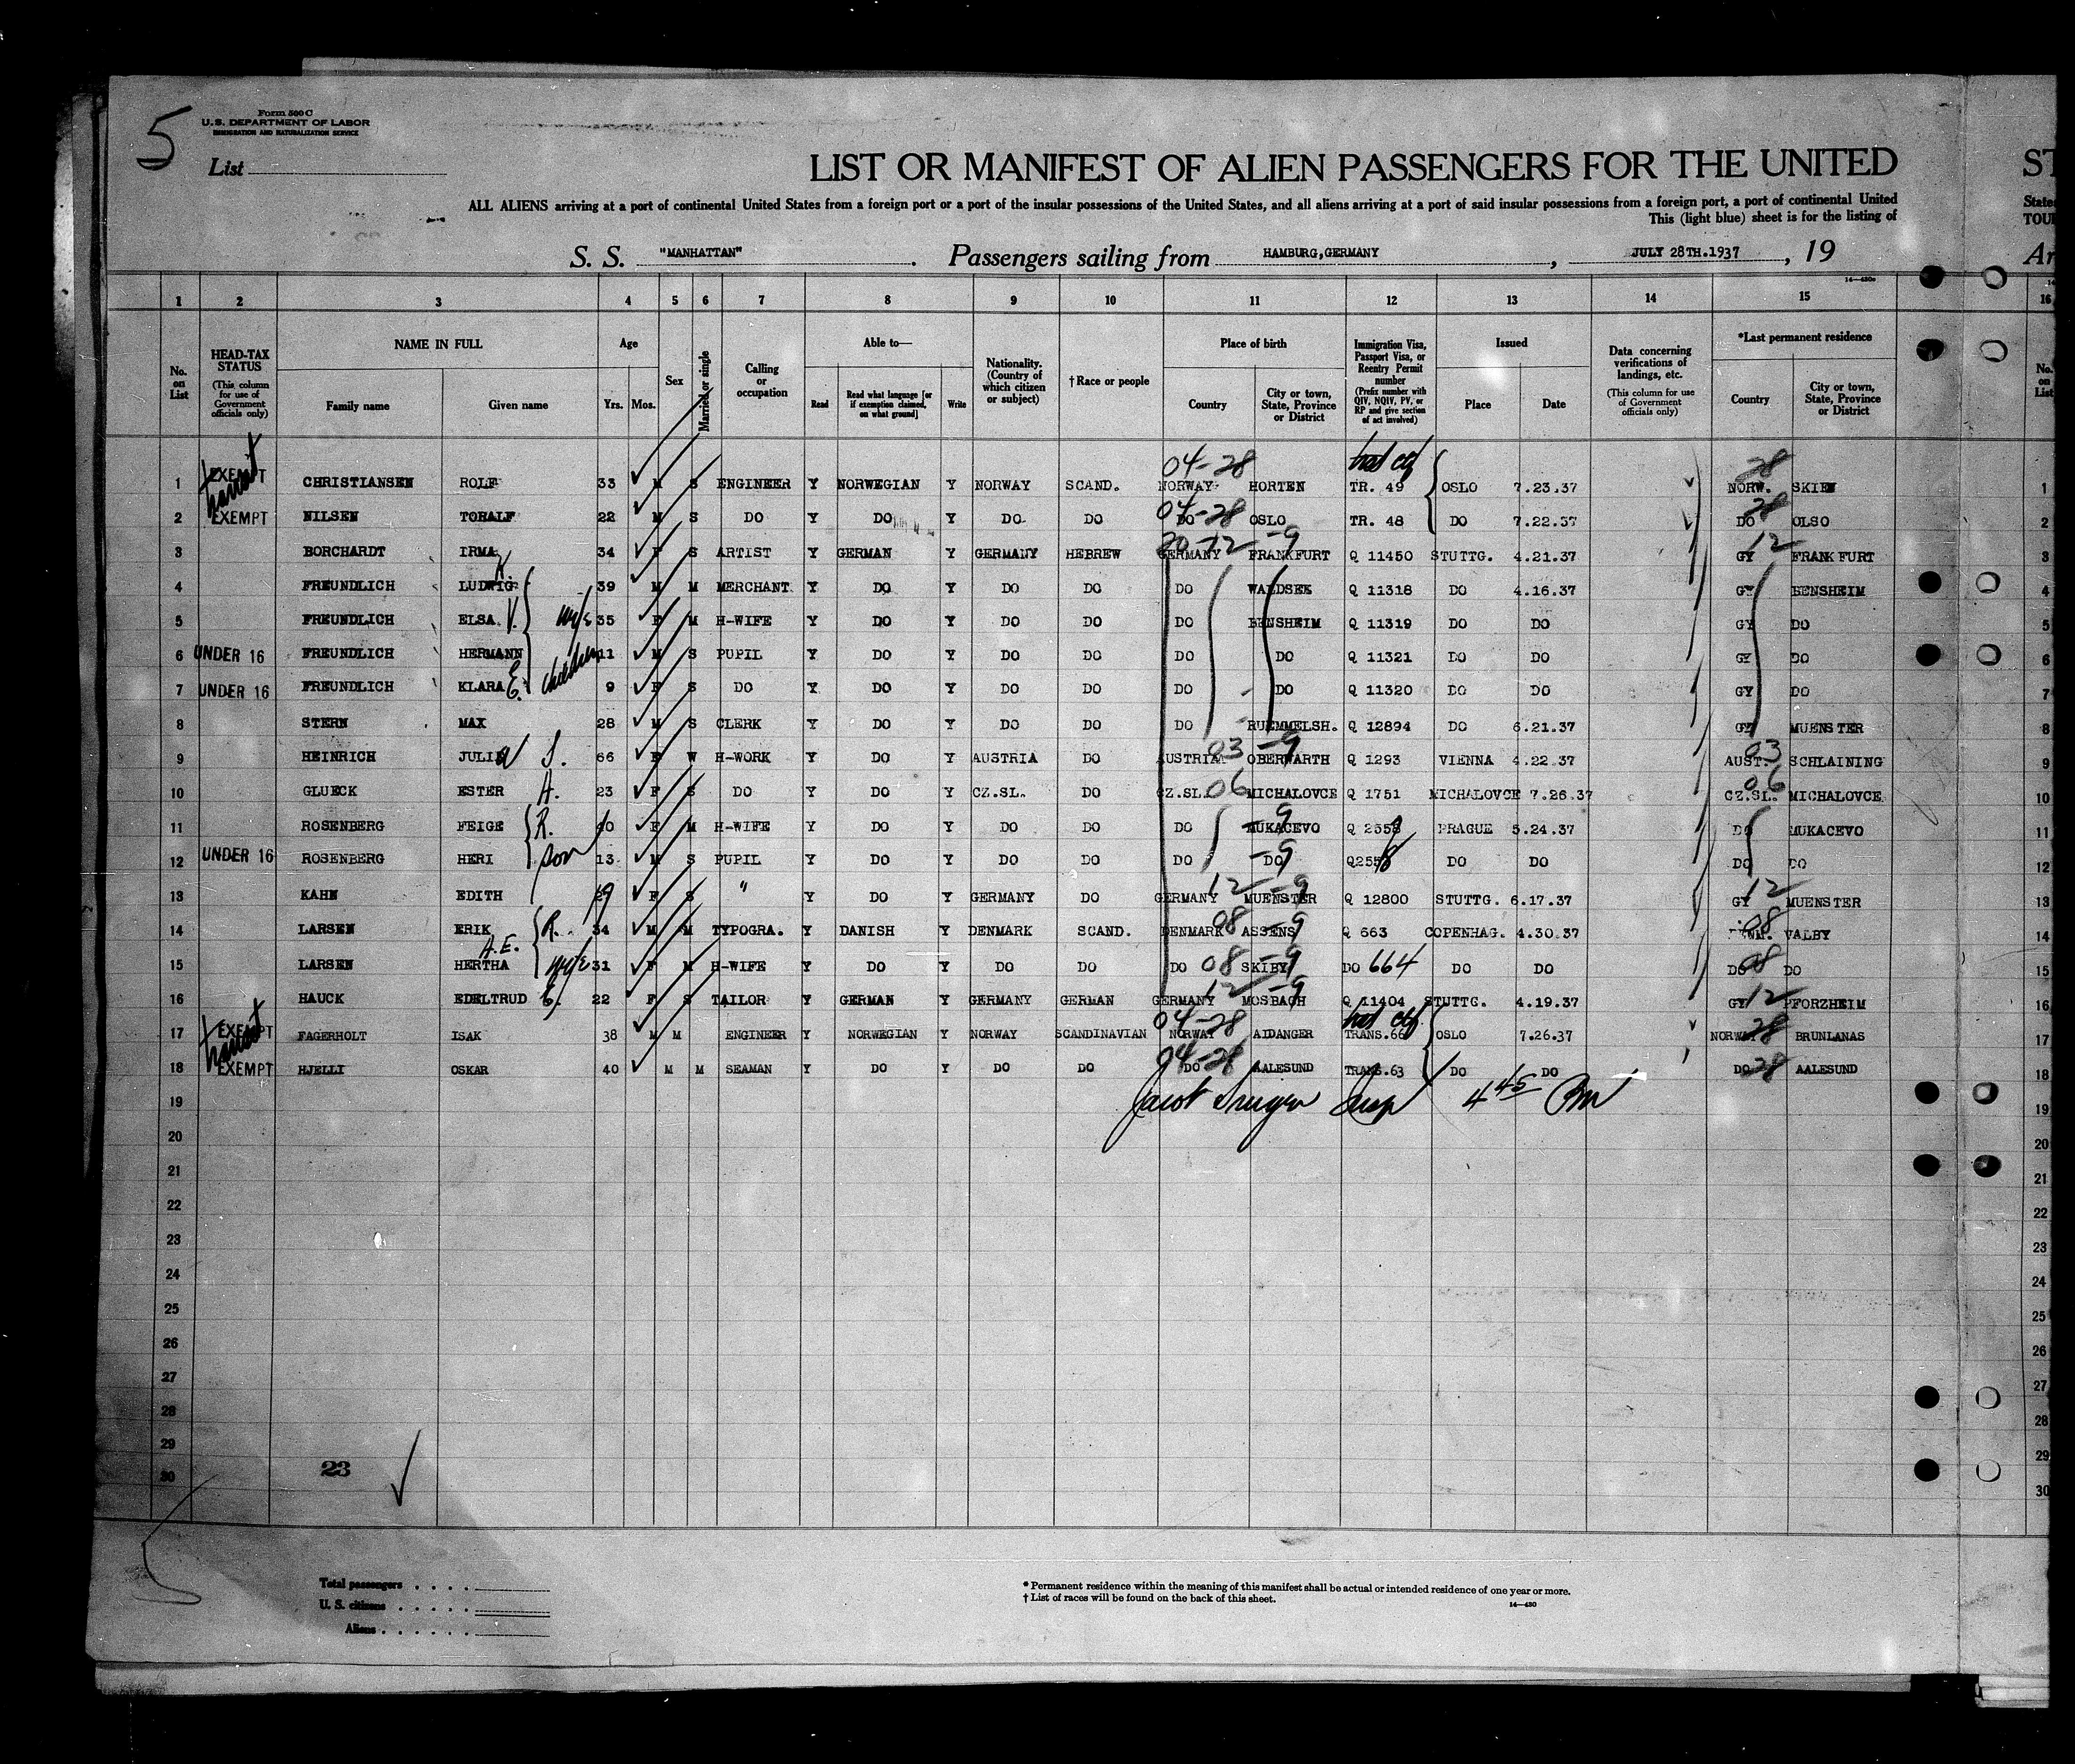 5
Form 500 C
U. S. DEPARTMENT OF LABOR
IMMIGRATION AND NATURALIZATION SERVICE
List
LIST OR MANIFEST OF ALIEN PASSENGERS FOR THE UNITED
ST
ALL ALIENS arriving at a port of continental United States from a foreign port or a port of the insular possessions of the United States, and all aliens arriving at a port of said insular possessions from a foreign port, a port of continental United
States
This (light blue) sheet is for the listing of
TOU
S. S. "MANHATTAN" . Passengers sailing from HAMBURG,GERMANY , JULY 28TH.1937 , 19
Ar
1 2 3 4 5 6 7 8 9 10 11 12 13 14 15 16
No. on List
HEAD-TAX STATUS (This column for use of Government officials only)
NAME IN FULL
Family name
Given name
Age
Yrs. Mos.
Sex
Married or single
Calling or occupation
Able to—
Read
Read what language [or if exemption claimed, on what ground]
Write
Nationality. (Country of which citizen or subject)
†Race or people
Place of birth
Country
City or town, State, Province or District
Immigration Visa, Passport Visa, or Reentry Permit number (Prefix number with QIV, NQIV, PV, or RP and give section of act involved)
Issued
Place
Date
Data concerning verifications of landings, etc. (This column for use of Government officials only)
*Last permanent residence
Country
City or town, State, Province or District
No. on List
1 EXEMPT CHRISTIANSEN ROLF 33 M S ENGINEER Y NORWEGIAN Y NORWAY SCAND. NORWAY 04-28 HORTEN TR. 49 OSLO 7.23.37 NORW. 28 SKIEN 1
2 EXEMPT NILSEN TORALF 22 M S DO Y DO Y DO DO DO 04-28 OSLO TR. 48 DO 7.22.37 DO 28 OLSO 2
3 BORCHARDT IRMA 34 F S ARTIST Y GERMAN Y GERMANY HEBREW GERMANY 12 -9 FRANKFURT Q 11450 STUTTG. 4.21.37 GY 12 FRANKFURT 3
4 FREUNDLICH LUDWIG K. 39 M M MERCHANT Y DO Y DO DO DO WALDSEE Q 11318 DO 4.16.37 GY BENSHEIM 4
5 FREUNDLICH ELSA V. wife 35 F M H-WIFE Y DO Y DO DO DO BENSHEIM Q 11319 DO DO GY DO 5
6 UNDER 16 FREUNDLICH HERMANN children 11 M S PUPIL Y DO Y DO DO DO DO Q 11321 DO DO GY DO 6
7 UNDER 16 FREUNDLICH KLARA E. 9 F S DO Y DO Y DO DO DO DO Q 11320 DO DO GY DO 7
8 STERN MAX 28 M S CLERK Y DO Y DO DO DO RUEMMELSH. Q 12894 DO 6.21.37 GY MUENSTER 8
9 HEINRICH JULIA S. 66 F W H-WORK Y DO Y AUSTRIA DO AUSTRIA 03 -9 OBERWARTH Q 1293 VIENNA 4.22.37 AUST. 03 SCHLAINING 9
10 GLUECK ESTER H. 23 F S DO Y DO Y CZ.SL. DO CZ.SL. 06 MICHALOVCE Q 1751 MICHALOVCE 7.26.37 CZ.SL. 06 MICHALOVCE 10
11 ROSENBERG FEIGE R. 40 F M H-WIFE Y DO Y DO DO DO -9 MUKACEVO Q 2559 PRAGUE 5.24.37 DO MUKACEVO 11
12 UNDER 16 ROSENBERG HERI son 13 M S PUPIL Y DO Y DO DO DO -9 DO Q2558 DO DO DO DO 12
13 KAHN EDITH 19 F S " Y DO Y GERMANY DO GERMANY 12 -9 MUENSTER Q 12800 STUTTG. 6.17.37 GY 12 MUENSTER 13
14 LARSEN ERIK R. 34 M M TYPOGRA. Y DANISH Y DENMARK SCAND. DENMARK 08 -9 ASSENS Q 663 COPENHAG. 4.30.37 08 VALBY 14
15 LARSEN HERTHA A.E. wife 31 F M H-WIFE Y DO Y DO DO DO 08 -9 SKIBY DO 664 DO DO DO 08 DO 15
16 HAUCK EDELTRUD E. 22 F S TAILOR Y GERMAN Y GERMANY GERMAN GERMANY 12 -9 MOSBACH Q 11404 STUTTG. 4.19.37 GY 12 PFORZHEIM 16
17 EXEMPT FAGERHOLT ISAK 38 M M ENGINEER Y NORWEGIAN Y NORWAY SCANDINAVIAN NORWAY 04-28 AIDANGER TRANS.66 OSLO 7.26.37 NORWAY 28 BRUNLANAS 17
18 EXEMPT HJELLI OSKAR 40 M M SEAMAN Y DO Y DO DO DO 04-28 AALESUND TRANS.63 DO DO DO 28 AALESUND 18
19 4 45 Pm 19
20 20
21 21
22 22
23 23
24 24
25 25
26 26
27 27
28 28
29 29
30 23 30
Total passengers . . . .
U. S. citizens . . . . .
Aliens . . . . . .
* Permanent residence within the meaning of this manifest shall be actual or intended residence of one year or more.
† List of races will be found on the back of this sheet.
14—430